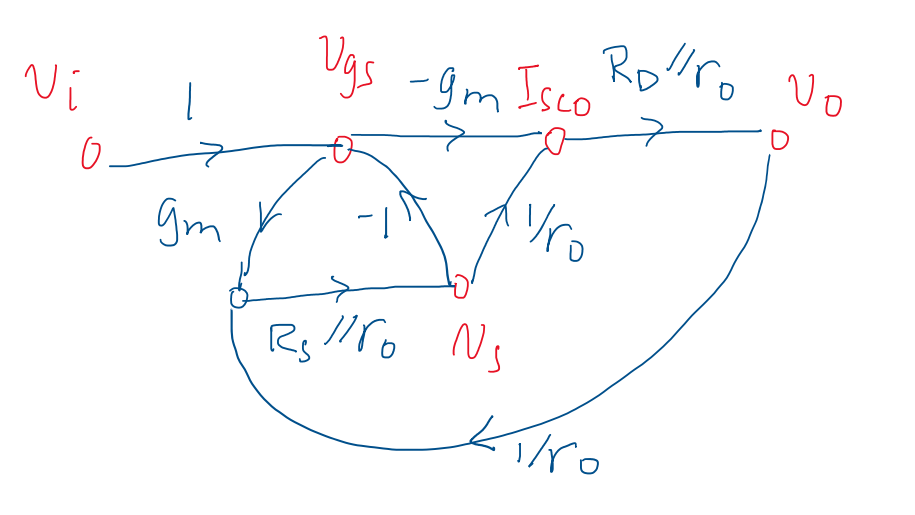 Vi
1
Vgs
-gm
Isco
RD//ro
Vo
gm
-1
1/ro
Rs//ro
Vs
1/ro